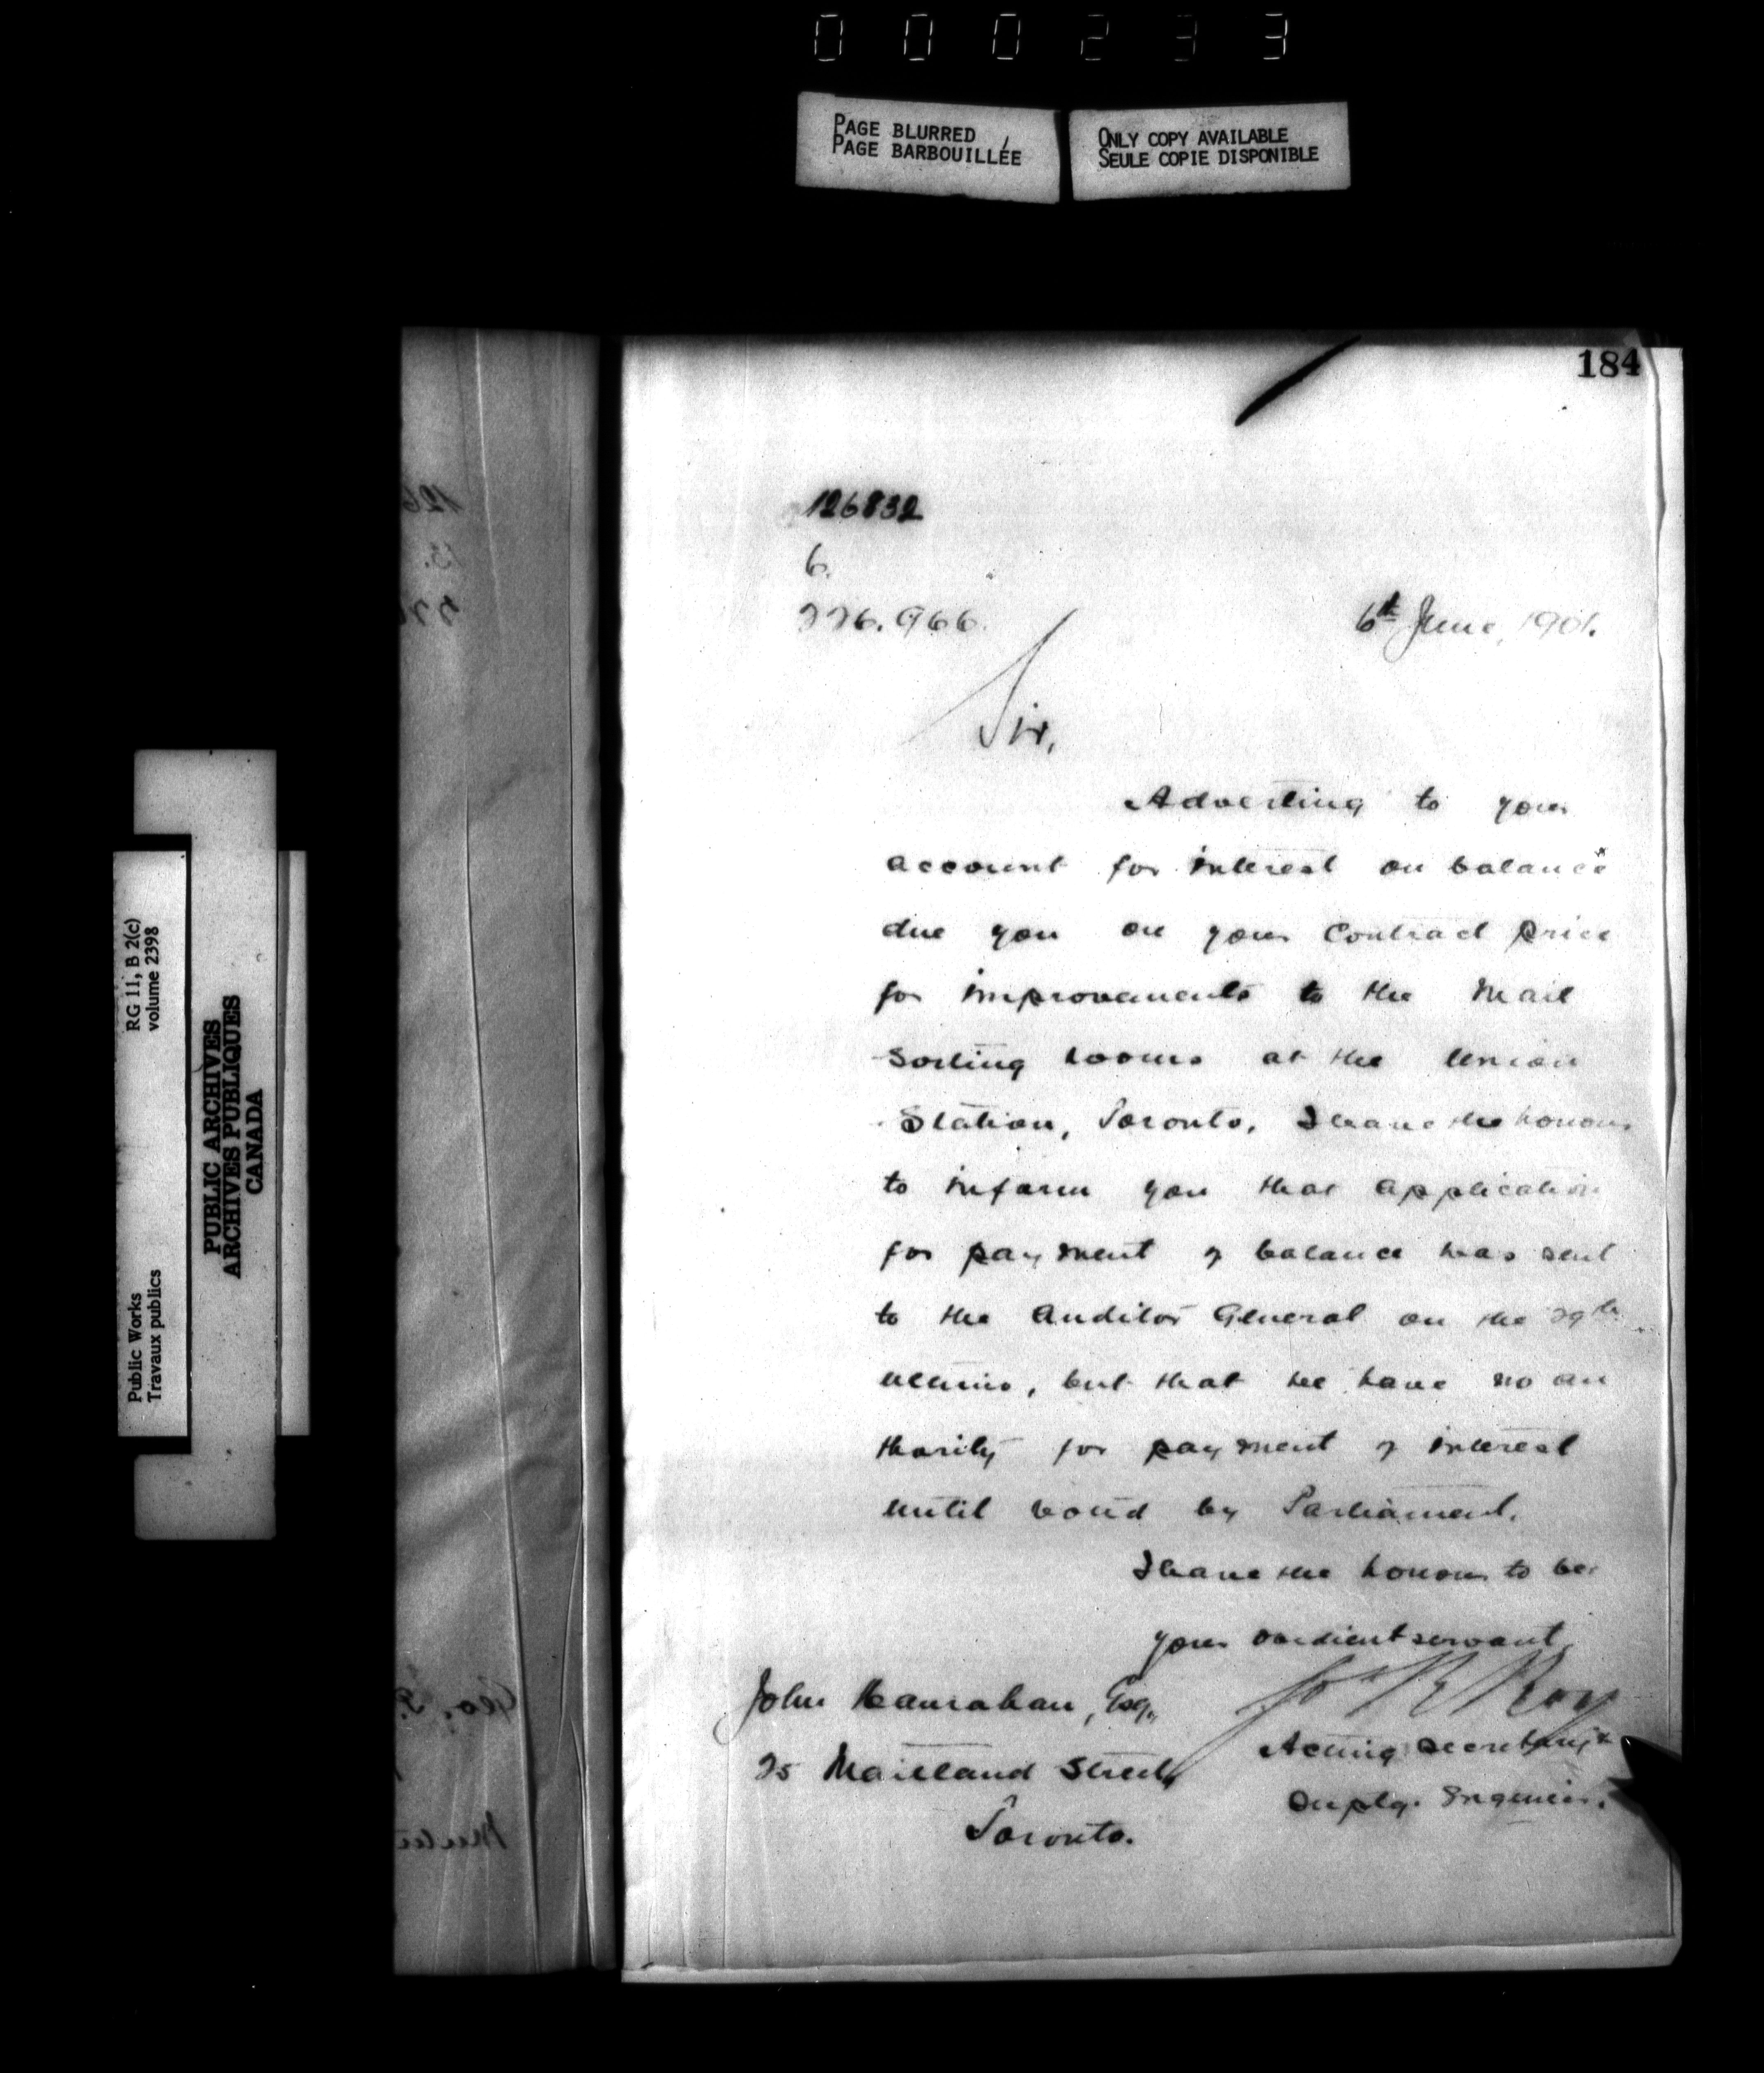 000233
PAGE BLURRED
PAGE BARBOUILLÉE
ONLY COPY AVAILABLE
SEULE COPIE DISPONIBLE
184
126832
6.
226.966.
6th June, 1901.
Sir,
Adverting to your
account for interest on balance
due you on your Contract price
for improvements to the Mail
Sorting rooms at the Union
Station, Toronto, I have the honour
to inform you that application
for payment of balance was sent
to the Auditor General on the 29th
ultimo, but that we have no au
thority for payment of interest
until voted by Parliament.
I have the honour to be
your obedient servant,
Roy
Acting Secretary &
Suplg. Engineer.
John Hanrahan, Esq.,
25 Maitland Street,
Toronto.
RG 11, B 2(c)
volume 2398
Public Works
Travaux publics
PUBLIC ARCHIVES
ARCHIVES PUBLIQUES
CANADA